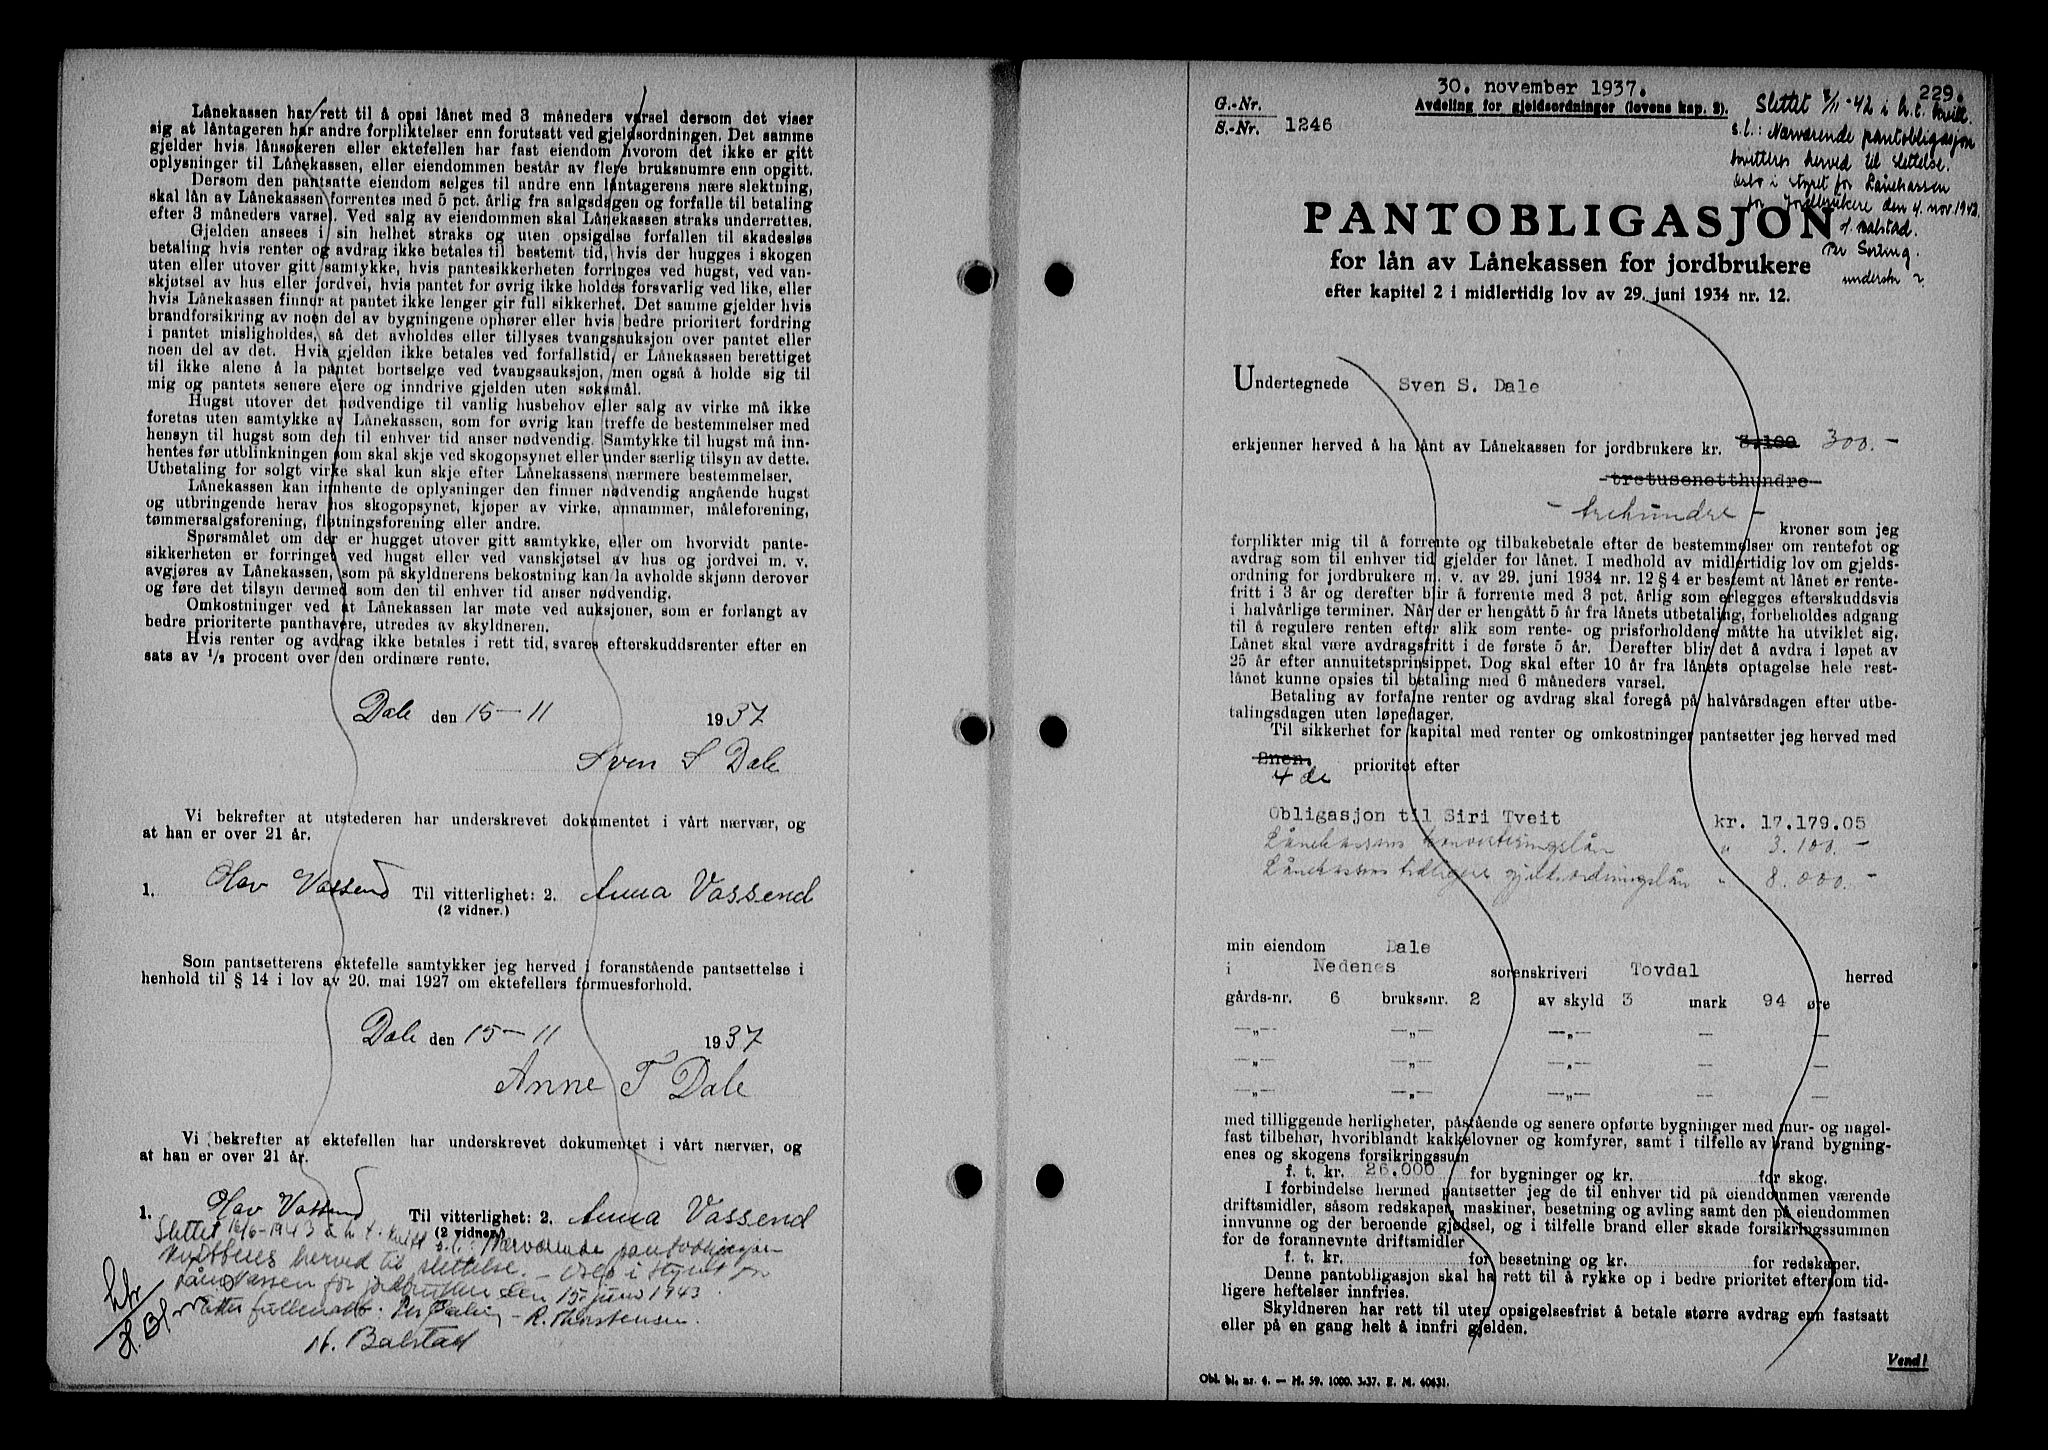 Lånekassen har rett til å opsi lånet med 3 måneders varsel dersom det viser
sig at låntageren har andre forpliktelser enn forutsatt ved gjeldsordningen. Det samme
gjelder hvis lånsøkeren eller ektefellen har fast eiendom hvorom det ikke er gitt
oplysninger til Lånekassen, eller eiendommen består av flere bruksnumre enn opgitt.
Dersom den pantsatte eiendom selges til andre enn låntagerens nære slektning,
skal lån av Lånekassen forrentes med 5 pct. årlig fra salgsdagen og forfalle til betaling
efter 3 måneders varsel. Ved salg av eiendommen skal Lånekassen straks underrettes.
Gjelden ansees i sin helhet straks og uten opsigelse forfallen til skadesløs
betaling hvis renter og avdrag ikke betales til bestemt tid, hvis der hugges i skogen
uten eller utover gitt samtykke, hvis pantesikkerheten forringes ved hugst, ved van-
skjøtsel av hus eller jordvei, hvis pantet for øvrig ikke holdes forsvarlig ved like, eller
hvis Lånekassen finner at pantet ikke lenger gir full sikkerhet. Det samme gjelder hvis
brandforsikring av noen del av bygningene ophører eller hvis bedre prioritert fordring
i pantet misligholdes, så det avholdes eller tillyses tvangsauksjon over pantet eller
noen del av det. Hvis gjelden ikke betales ved forfallstid, er Lånekassen berettiget
til ikke alene å la pantet bortselge ved tvangsauksjon, men også å holde sig til
mig og pantets senere eiere og inndrive gjelden uten søksmål.
Hugst utover det nødvendige til vanlig husbehov eller salg av virke må ikke
foretas uten samtykke av Lånekassen, som for øvrig kan treffe de bestemmelser med
hensyn til hugst som den til enhver tid anser nødvendig. Samtykke til hugst må inn-
hentes før utblinkningen som skal skje ved skogopsynet eller under særlig tilsyn av dette.
Utbetaling for solgt virke skal kun skje efter Lånekassens nærmere bestemmelser.
Lånekassen kan innhente de oplysninger den finner nødvendig angående hugst
og utbringende herav hos skogopsynet, kjøper av virke, annammer, måleforening,
tømmersalgsforening, fløtningsforening eller andre.
Spørsmålet om der er hugget utover gitt samtykke, eller om hvorvidt pante-
sikkerheten er forringet ved hugst eller ved vanskjøtsel av hus og jordvei m. v.
avgjøres av Lånekassen, som på skyldnerens bekostning kan la avholde skjønn derover
og føre det tilsyn dermed som den til enhver tid anser nødvendig.
Omkostninger ved at Lånekassen lar møte ved auksjoner, som er forlangt av
bedre prioriterte panthavere, utredes av skyldneren.
Hvis renter og avdrag ikke betales i rett tid, svares efterskuddsrenter efter en
sats av 1/2 procent over den ordinære rente.
Dale den 15-11 1937
Sven S Dale
Vi bekrefter at utstederen har underskrevet dokumentet i vårt nærvær, og
at han er over 21 år.
1. Olav Vassend Til vitterlighet: 2. Anna Vassend
(2 vidner.)
Som pantsetterens ektefelle samtykker jeg herved i foranstående pantsettelse i
henhold til § 14 i lov av 20. mai 1927 om ektefellers formuesforhold.
Dale den 15-11 1937
Anne T Dale
Vi bekrefter at ektefellen har underskrevet dokumentet i vårt nærvær, og
at han er over 21 år.
1. Olav Vassend Til vitterlighet: 2. Anna Vassend
(2 vidner.)
Slettet 16/6-1943 s.l.: Nærværende pantobligasjon
kvitteres herved til slettelse. - Oslo i styret for
Lånekassen for jordbrukere den 15. juni 1943.
Etter fullmakt: Per Sørling - R. Thorstensen.
N. Balstad
30. november 1937. 229.
G.-Nr.
S.-Nr. 1246
Avdeling for gjeldsordninger (lovens kap. 2).
Slettet 7/11-42 i h. t. kvitt.
s.l.: Nærværende pantobligasjon
kvitteres herved til slettelse.
Oslo i styret for Lånekassen
for Jordbrukere den 4. nov. 1942.
N. Balstad.
Per Sørling.
underskr
PANTOBLIGASJON
for lån av Lånekassen for jordbrukere
efter kapitel 2 i midlertidig lov av 29. juni 1934 nr. 12.
Undertegnede Sven S. Dale
erkjenner herved å ha lånt av Lånekassen for jordbrukere kr. 3.100 300.-
tretusenetthundre
- trehundre -
kroner som jeg
forplikter mig til å forrente og tilbakebetale efter de bestemmelser om rentefot og
avdrag som til enhver tid gjelder for lånet. I medhold av midlertidig lov om gjelds-
ordning for jordbrukere m. v. av 29. juni 1934 nr. 12 § 4 er bestemt at lånet er rente-
fritt i 3 år og derefter blir å forrente med 3 pct. årlig som erlegges efterskuddsvis
i halvårlige terminer. Når der er hengått 5 år fra lånets utbetaling, forbeholdes adgang
til å regulere renten efter slik som rente- og prisforholdene måtte ha utviklet sig.
Lånet skal være avdragsfritt i de første 5 år. Derefter blir det å avdra i løpet av
25 år efter annuitetsprinsippet. Dog skal efter 10 år fra lånets optagelse hele rest-
lånet kunne opsies til betaling med 6 måneders varsel.
Betaling av forfalne renter og avdrag skal foregå på halvårsdagen efter utbe-
talingsdagen uten løpedager.
Til sikkerhet for kapital med renter og omkostninger pantsetter jeg herved med
2nen.
4 de prioritet efter
Obligasjon til Siri Tveit kr. 17.179.05
Lånekassens konverteringslån " 3.100.-
Lånekassens tidligere gjeldsordningslån " 8.000.-
min eiendom Dale
i Nedenes sorenskriveri Tovdal herred
gårds-nr. 6 bruks-nr. 2 av skyld 3 mark 94 øre
—„— —„— —„— — —
—„— —„— —„— — —
—„— —„— —„— — —
med tilliggende herligheter, påstående og senere opførte bygninger med mur- og nagel-
fast tilbehør, hvoriblandt kakkelovner og komfyrer, samt i tilfelle av brand bygning-
enes og skogens forsikringssum
f. t. kr. 26.000 for bygninger og kr. for skog.
I forbindelse hermed pantsetter jeg de til enhver tid på eiendommen værende
driftsmidler, såsom redskaper, maskiner, besetning og avling samt den på eiendommen
innvunne og der beroende gjødsel, og i tilfelle brand eller skade forsikringssummen
for de forannevnte driftsmidler
f. t. kr. for besetning og kr. for redskaper.
Denne pantobligasjon skal ha rett til å rykke op i bedre prioritet eftersom tid-
ligere heftelser innfries.
Skyldneren har rett til uten opsigelsesfrist å betale større avdrag enn fastsatt
eller på en gang helt å innfri gjelden.
Vend!
Obl. bl. nr. 4. — H. 59. 1000. 3-37. E. M. 40631.